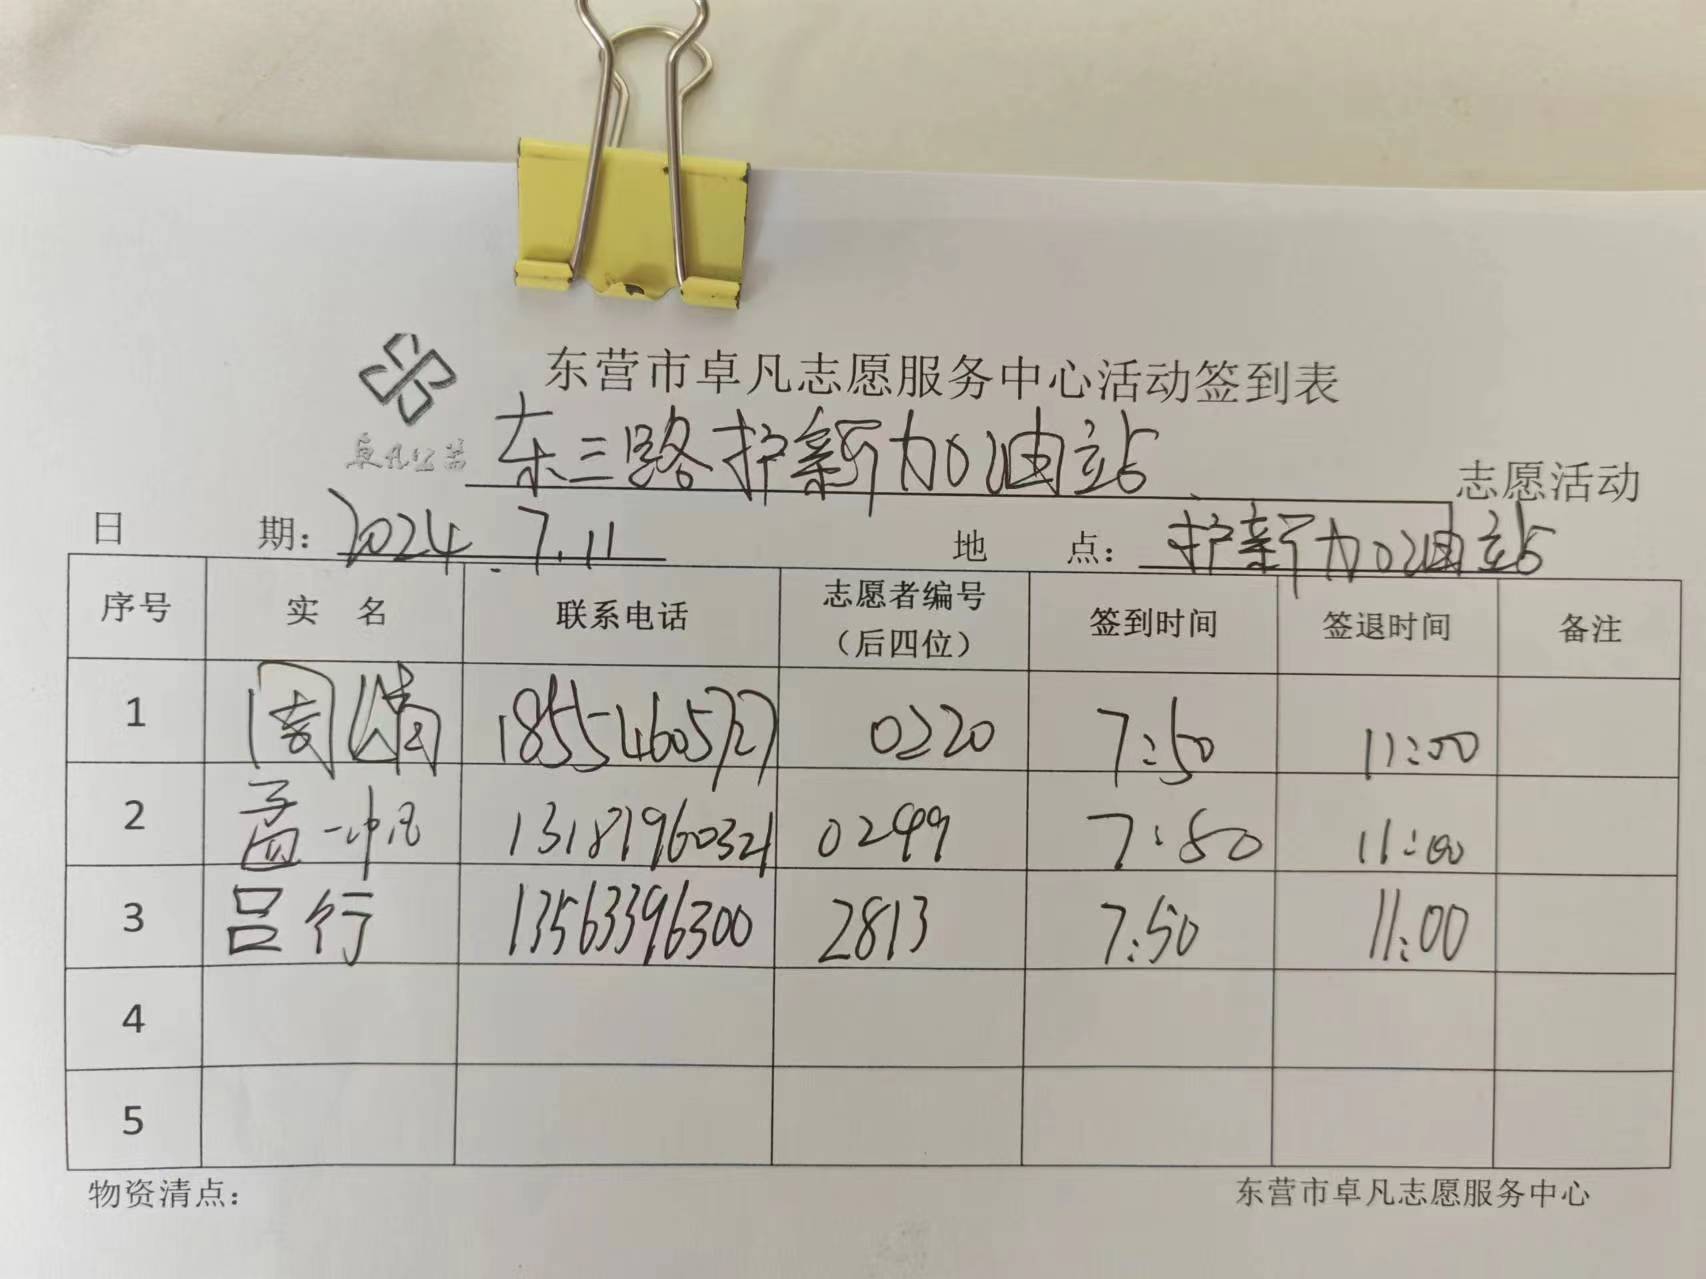 东营市卓凡志愿服务中心活动签到表
卓凡公益
东三路护新加油站 志愿活动
日 期: 2024.7.11 地 点: 护新加油站
序号 实 名 联系电话 志愿者编号（后四位） 签到时间 签退时间 备注
1 周婧 0220 7:50 11:00
2 孟一帆 13181960321 0299 7:50 11:00
3 吕行 13563396300 2813 7:50 11:00
4
5
物资清点: 东营市卓凡志愿服务中心